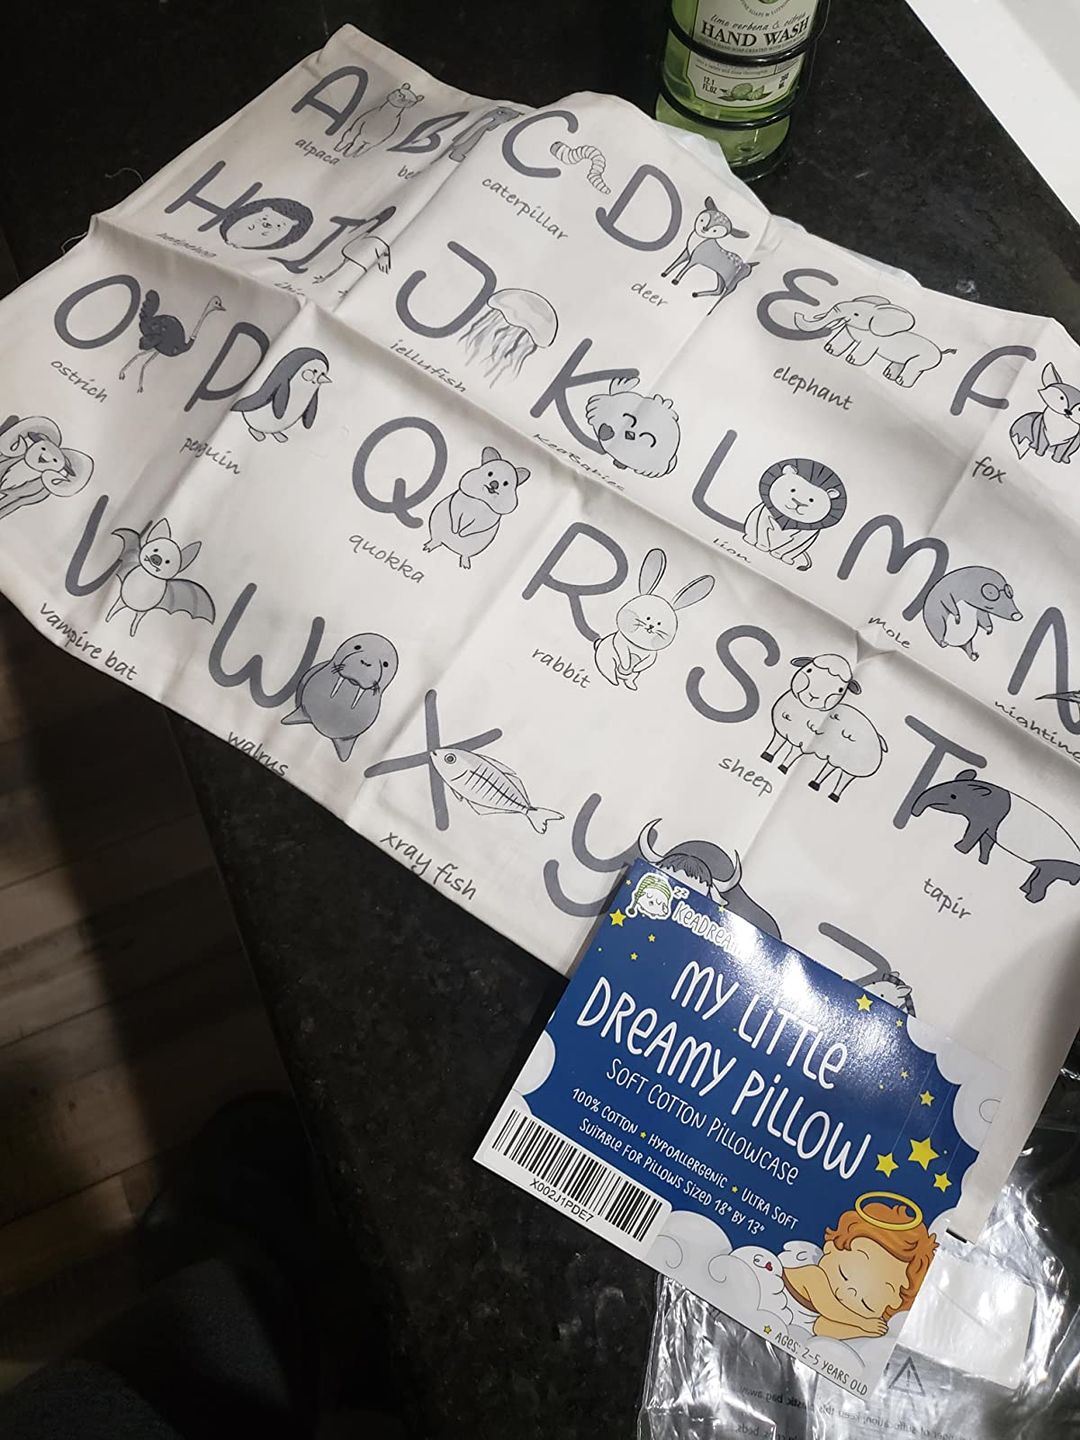 lime verbena & citrus
HAND WASH
12.1
FL.OZ
A
alpaca
B
C
caterpillar
D
deer
E
elephant
F
fox
H
hedgehog
I
J
jellyfish
K
KeaBabies
L
lion
M
mole
N
O
ostrich
P
penguin
Q
quokka
R
rabbit
S
sheep
T
tapir
V
vampire bat
W
walrus
X
xray fish
y
Z
MY LITTLE
DREAMY PILLOW
SOFT COTTON PILLOWCASE
100% COTTON ★ HYPOALLERGENIC ★ ULTRA SOFT
SUITABLE FOR PILLOWS SIZED 18" BY 13"
X002J1PDE7
★ AGES: 2-5 YEARS OLD